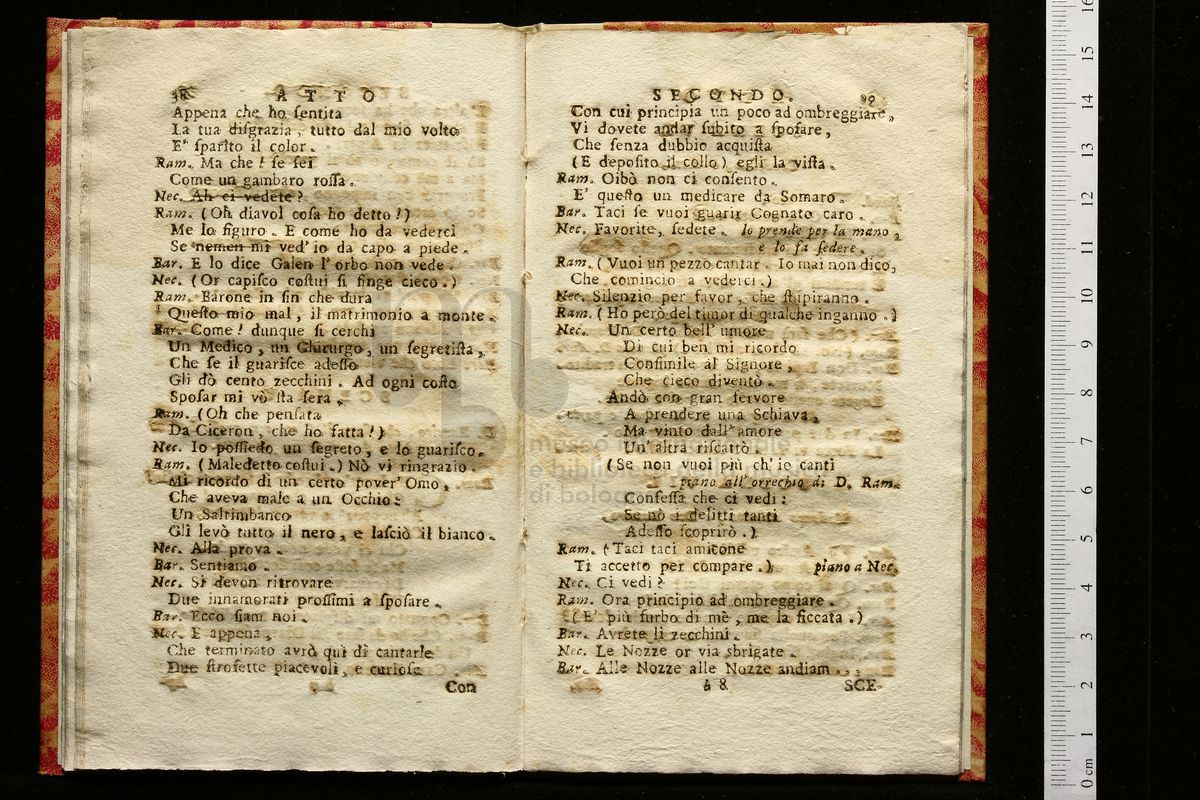 38 ATTO
Appena che ho ſentita
La tua diſgrazia, tutto dal mio volto
E' ſparito il color.
Ram. Ma che! ſe ſei
Come un gambaro roſſa.
Nec. Ah ci vedete?
Ram. (Oh diavol coſa ho detto!)
Me lo figuro. E come ho da vederci
Se nemen mi ved' io da capo a piede.
Bar. E lo dice Galen l' orbo non vede.
Nec. (Or capiſco coſtui ſi finge cieco.)
Ram. Barone in fin che dura
Queſto mio mal, il matrimonio a monte.
Bar. Come! dunque ſi cerchi
Un Medico, un Chirurgo, un ſegretiſta,
Che ſe il guariſce adeſſo
Gli dò cento zecchini. Ad ogni coſto
Spoſar mi vò ſta ſera.
Ram. (Oh che penſata
Da Ciceron, che ho fatta!)
Nec. Io poſſiedo un ſegreto, e lo guariſco.
Ram. (Maledetto coſtui.) Nò vi ringrazio.
Mi ricordo di un certo pover' Omo,
Che aveva male a un Occhio:
Un Saltimbanco
Gli levò tutto il nero, e laſciò il bianco.
Nec. Alla prova.
Bar. Sentiamo.
Nec. Si devon ritrovare
Due innamorati proſſimi a ſpoſare.
Bar. Ecco ſiam noi.
Nec. E appena,
Che terminato avrò quì di cantarle
Due ſtrofette piacevoli, e curioſe
Con
SECONDO. 39
Con cui principia un poco ad ombreggiare,
Vi dovete andar ſubito a ſpoſare,
Che ſenza dubbio acquiſta
(E depoſito il collo) egli la viſta.
Ram. Oibò non ci conſento.
E' queſto un medicare da Somaro.
Bar. Taci ſe vuoi guarir Cognato caro.
Nec. Favorite, ſedete. lo prende per la mano,
e lo fa ſedere.
Ram. (Vuoi un pezzo cantar. Io mai non dico,
Che comincio a vederci.)
Nec. Silenzio per favor, che ſtupiranno.
Ram. (Ho però del timor di qualche inganno.)
Nec. Un certo bell' umore
Di cui ben mi ricordo
Conſimile al Signore,
Che cieco diventò.
Andò con gran fervore
A prendere una Schiava,
Ma vinto dall' amore
Un' altra riſcattò.
(Se non vuoi più ch' io canti
piano all' orrechio di D. Ram.
Confeſſa che ci vedi:
Se nò i delitti tanti
Adeſſo ſcoprirò.)
Ram. (Taci taci amicone
Ti accetto per compare.) piano a Nec.
Nec. Ci vedi?
Ram. Ora principio ad ombreggiare.
(E' più furbo di mè, me la ficcata.)
Bar. Avrete li zecchini.
Nec. Le Nozze or via sbrigate.
Bar. Alle Nozze alle Nozze andiam...
8 SCE-
museo
e bibli
di bolo
0 cm 1 2 3 4 5 6 7 8 9 10 11 12 13 14 15 16